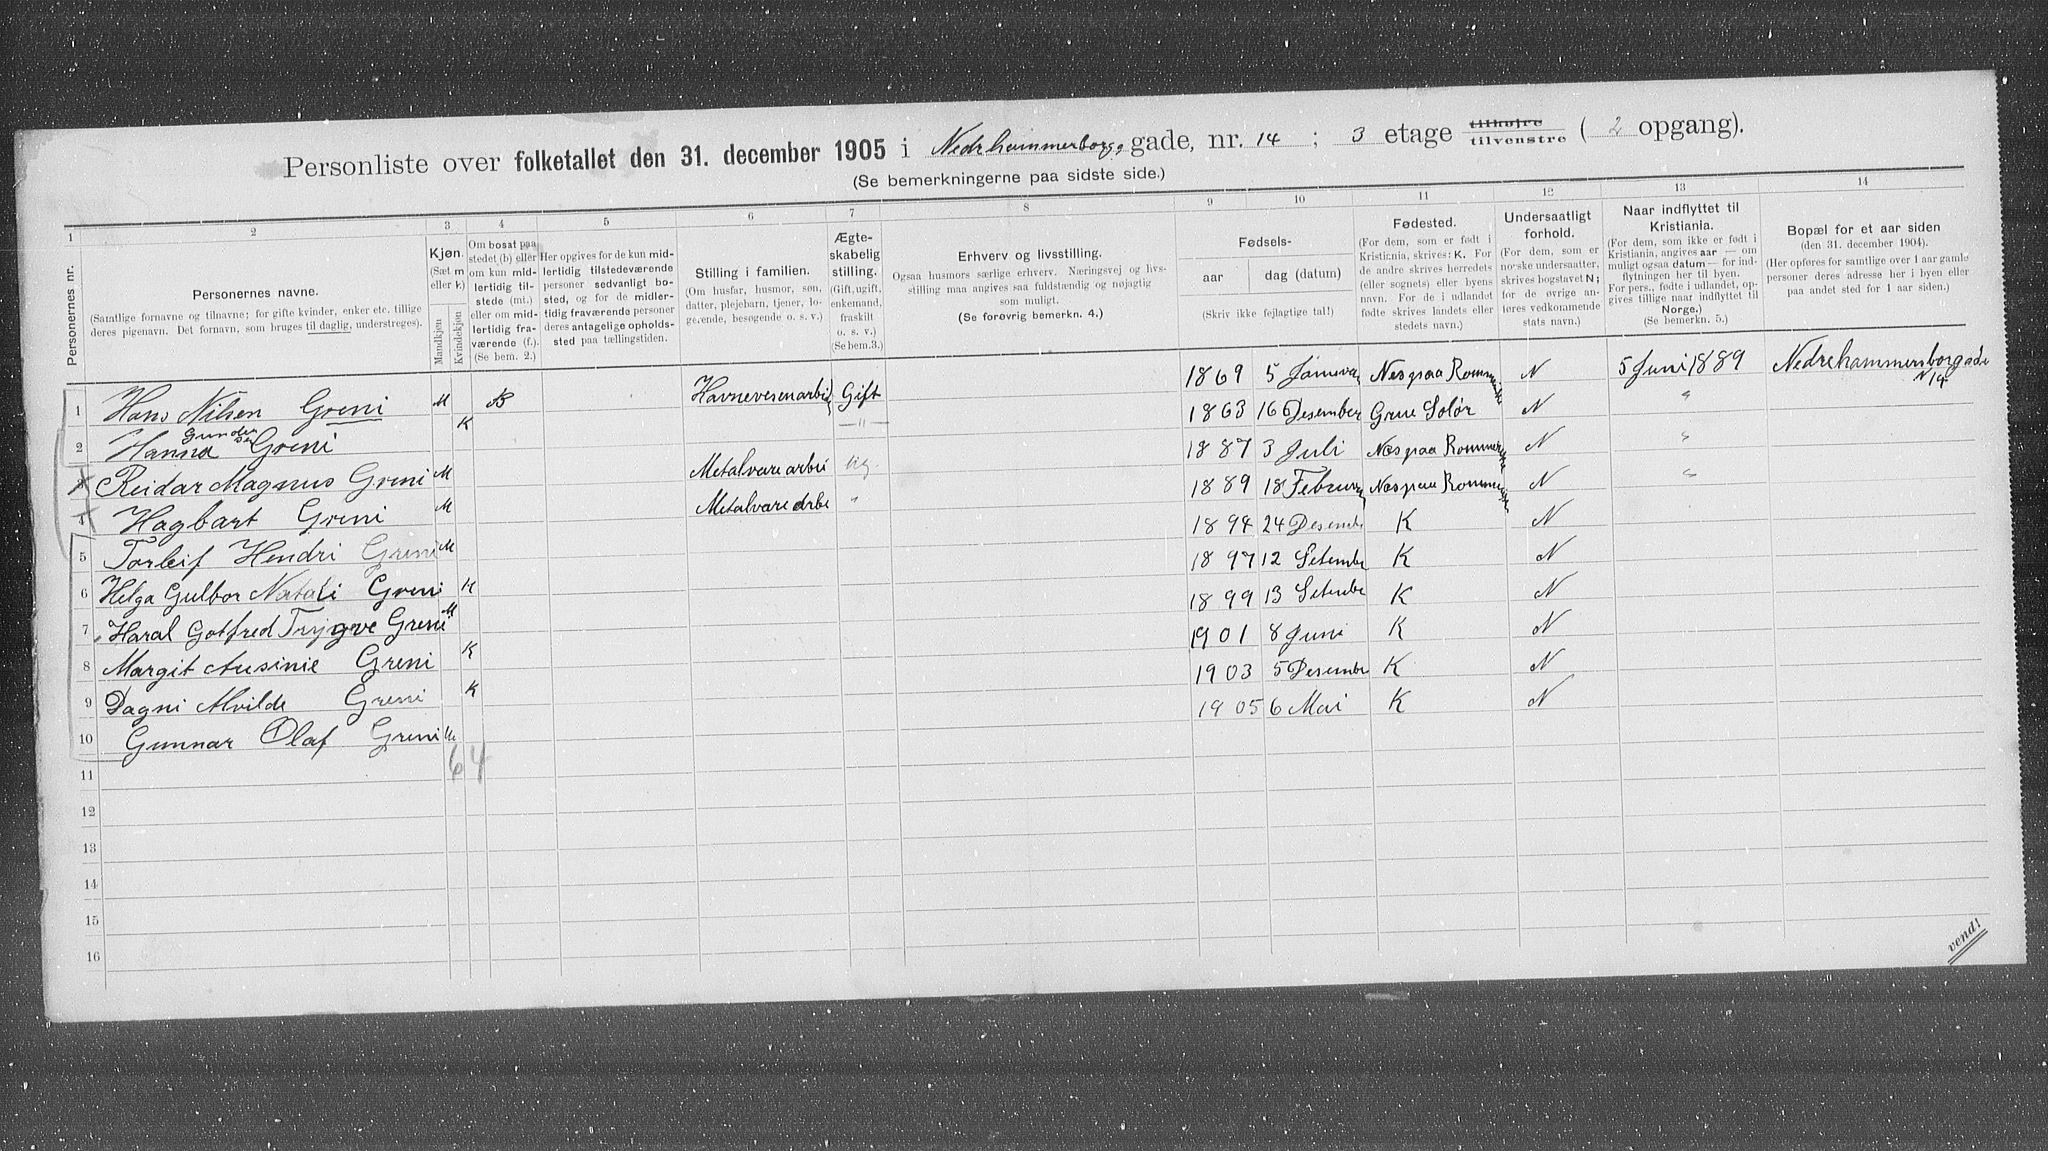 Personliste over folketallet den 31. december 1905 i Nedrhammerborgs gade, nr. 14 ; 3 etage tilhøjre tilvenstre ( 2 opgang).
(Se bemerkningerne paa sidste side.)
1 2 3 4 5 6 7 8 9 10 11 12 13 14
Personernes nr.
Personernes navne.
(Samtlige fornavne og tilnavne; for gifte kvinder, enker etc. tillige
deres pigenavn. Det fornavn, som bruges til daglig, understreges).
Kjøn.
(Sæt m
eller k)
Mandkjøn
Kvindekjøn
Om bosat paa
stedet (b) eller
om kun mid-
lertidig til-
stede (mt.)
eller om mid-
lertidig fra-
værende (f.).
(Se bem. 2.)
Her opgives for de kun mid-
lertidig tilstedeværende
personer sedvanligt bo-
sted, og for de midler-
tidig fraværende personer
deres antagelige opholds-
sted paa tællingstiden.
Stilling i familien.
(Om husfar, husmor, søn,
datter, plejebarn, tjener, lo-
gerende, besøgende o. s. v.)
Ægte-
skabelig
stilling.
(Gift, ugift,
enkemand,
fraskilt
o. s. v.)
(Se bem.3.)
Erhverv og livsstilling.
Ogsaa husmors særlige erhverv. Næringsvej og livs-
stilling maa angives saa fuldstændig og nøjagtig
som muligt.
(Se forøvrig bemerkn. 4.)
Fødsels-
aar
dag (datum)
(Skriv ikke fejlagtige tal!)
Fødested.
(For dem, som er født i
Kristiania, skrives: K. For
de andre skrives herredets
(eller sognets) eller byens
navn. For de i udlandet
fødte skrives landets eller
stedets navn.)
Undersaatligt
forhold.
(For dem, som er
norske undersaatter,
skrives bogstavet N;
for de øvrige an-
føres vedkommende
stats navn.)
Naar indflyttet til
Kristiania.
(For dem, som ikke er født i
Kristiania, angives aar — om
muligt ogsaa datum — for ind-
flytningen her til byen.
For pers., fødte i udlandet, op-
gives tillige naar indflyttet til
Norge.)
(Se bemerkn. 5.)
Bopæl for et aar siden
(den 31. december 1904).
(Her opføres for samtlige over 1 aar gamle
personer deres adresse her i byen eller
paa andet sted for 1 aar siden.)
1 Hans Nilsen Greni M B Havnevesenarbei Gift 1869 5 Januvar Nes paa Rommerike N 5 Juni 1889 Nedrehammersborgade N 14
2 Hanna Gundersen Greni K —"— 1863 16 Desember Grue Solør N "
3 Reidar Magnus Greni M Metalvarearbei Ug. 1887 3 Juli Nes paa Rommerike N "
4 Hagbart Greni M Metalvarearbe " 1889 18 Februar Nes paa Rommerike N "
5 Torleif Hendri Greni M 1894 24 Desembe K N
6 Helga Gulbor Natali Greni K 1897 12 Setembe K N
7 Haral Gotfred Trygve Greni M 1899 13 Setembe K N
8 Margit Ausinie Greni K 1901 8 Juni K N
9 Dagni Alvilde Greni K 1903 5 Desembe K N
10 Gunnar Olaf Greni M 1905 6 Mai K N
6 4
11
12
13
14
15
16
vend!